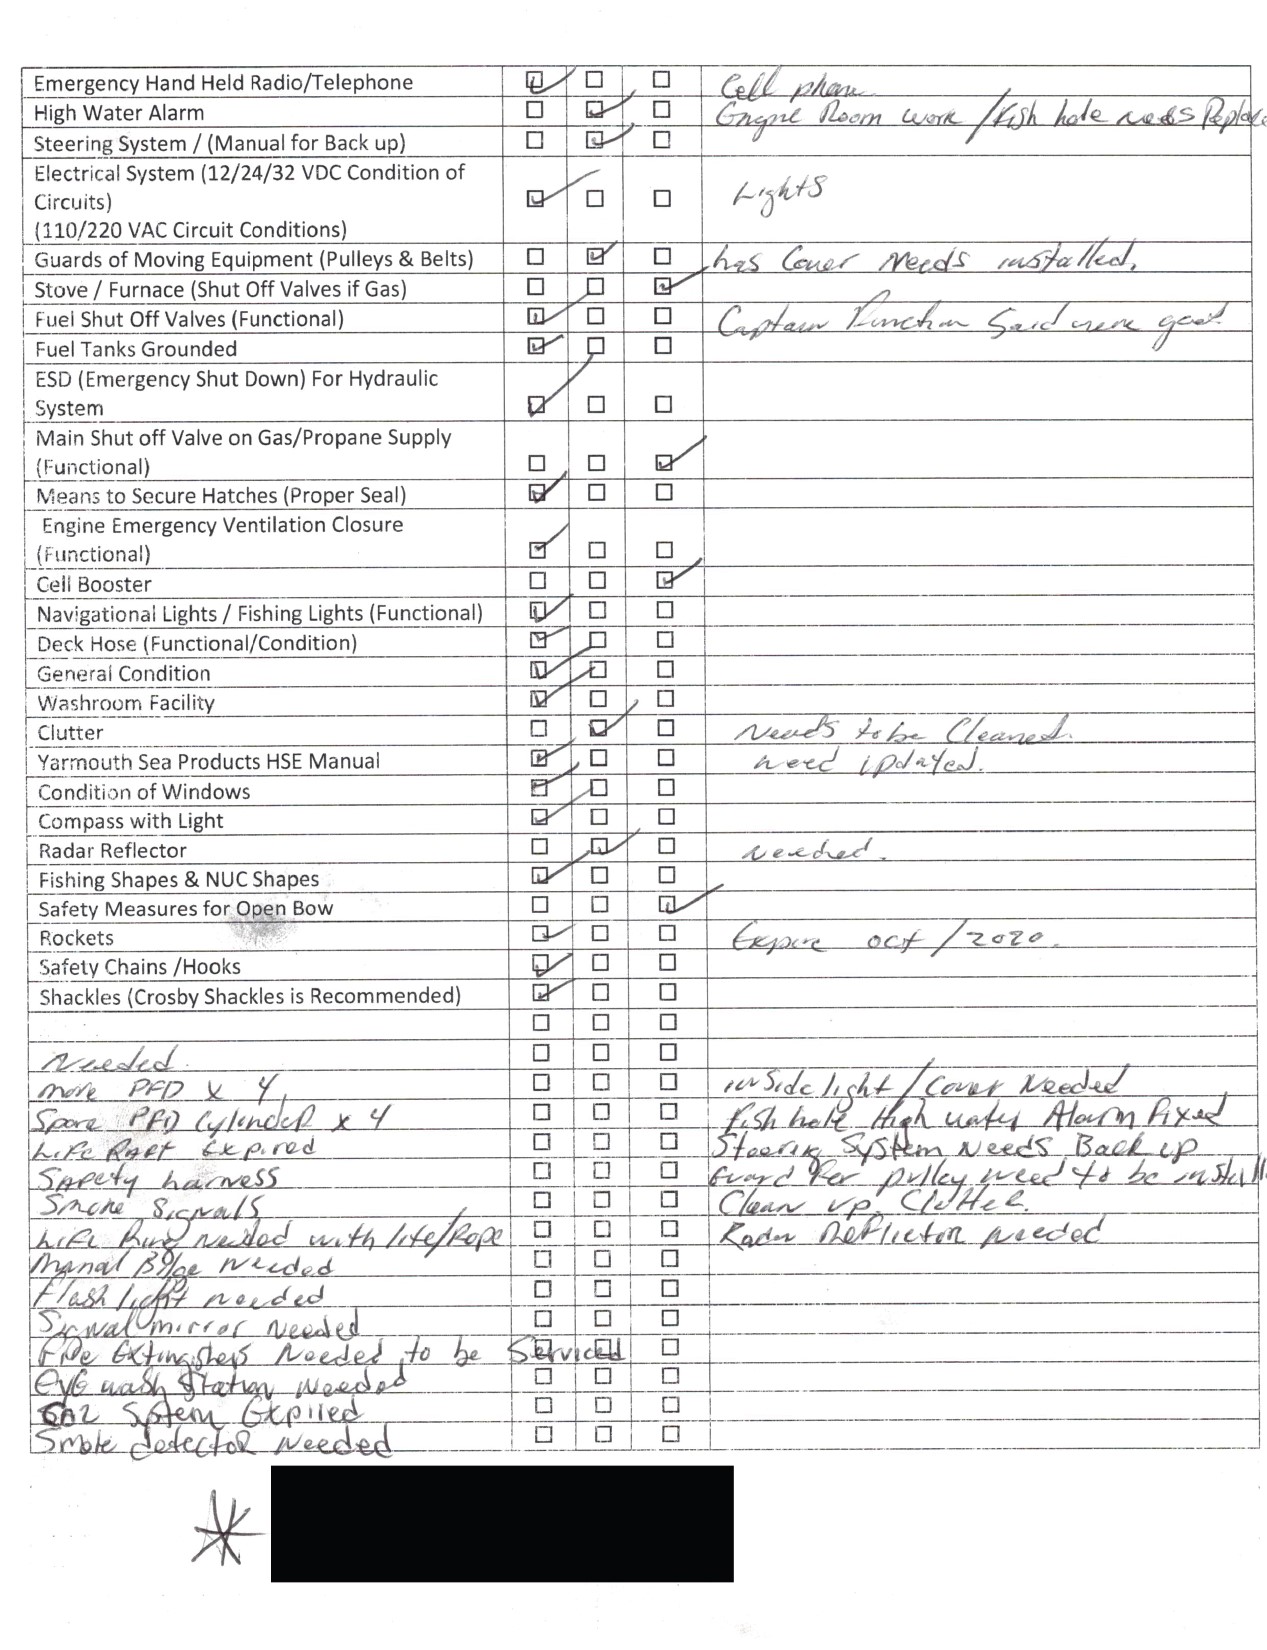 Emergency Hand Held Radio/Telephone ☑ ☐ ☐ Cell phone
High Water Alarm ☐ ☑ ☐ Engine Room work / Fish hole needs Replace
Steering System / (Manual for Back up) ☐ ☑ ☐
Electrical System (12/24/32 VDC Condition of
Circuits) ☑ ☐ ☐ Lights
(110/220 VAC Circuit Conditions)
Guards of Moving Equipment (Pulleys & Belts) ☐ ☑ ☐ has Cover Needs installed.
Stove / Furnace (Shut Off Valves if Gas) ☐ ☐ ☑
Fuel Shut Off Valves (Functional) ☑ ☐ ☐ Captain Function Said were good
Fuel Tanks Grounded ☑ ☐ ☐
ESD (Emergency Shut Down) For Hydraulic
System ☑ ☐ ☐
Main Shut off Valve on Gas/Propane Supply
(Functional) ☐ ☐ ☑
Means to Secure Hatches (Proper Seal) ☑ ☐ ☐
Engine Emergency Ventilation Closure
(Functional) ☑ ☐ ☐
Cell Booster ☐ ☐ ☑
Navigational Lights / Fishing Lights (Functional) ☑ ☐ ☐
Deck Hose (Functional/Condition) ☑ ☐ ☐
General Condition ☑ ☐ ☐
Washroom Facility ☑ ☐ ☐
Clutter ☐ ☑ ☐ Needs to be Cleaned.
Yarmouth Sea Products HSE Manual ☑ ☐ ☐ need updated.
Condition of Windows ☑ ☐ ☐
Compass with Light ☑ ☐ ☐
Radar Reflector ☐ ☑ ☐ Needed.
Fishing Shapes & NUC Shapes ☑ ☐ ☐
Safety Measures for Open Bow ☐ ☐ ☑
Rockets ☑ ☐ ☐ Expire oct / 2020.
Safety Chains /Hooks ☑ ☐ ☐
Shackles (Crosby Shackles is Recommended) ☑ ☐ ☐
☐ ☐ ☐
Needed. ☐ ☐ ☐
more PFD x 4, ☐ ☐ ☐ inside light / Cover Needed
Spare PFD Cylinder x 4 ☐ ☐ ☐ fish hole High water Alarm Fixed
Life Raft Expired ☐ ☐ ☐ Steering System Needs Back up
Safety harness ☐ ☐ ☐ Guard for pulley need to be install
Smoke Signals ☐ ☐ ☐ Clean up Clutter.
Life Ring Needed with lite/Rope ☐ ☐ ☐ Radar Reflector needed
Manal Bilge Needed ☐ ☐ ☐
Flash light needed ☐ ☐ ☐
Signal mirror Needed ☐ ☐ ☐
Fire Extingishers Needed to be Serviced ☐
Eye wash Station Needed ☐ ☐ ☐
Co2 System Expired ☐ ☐ ☐
Smoke detector Needed ☐ ☐ ☐